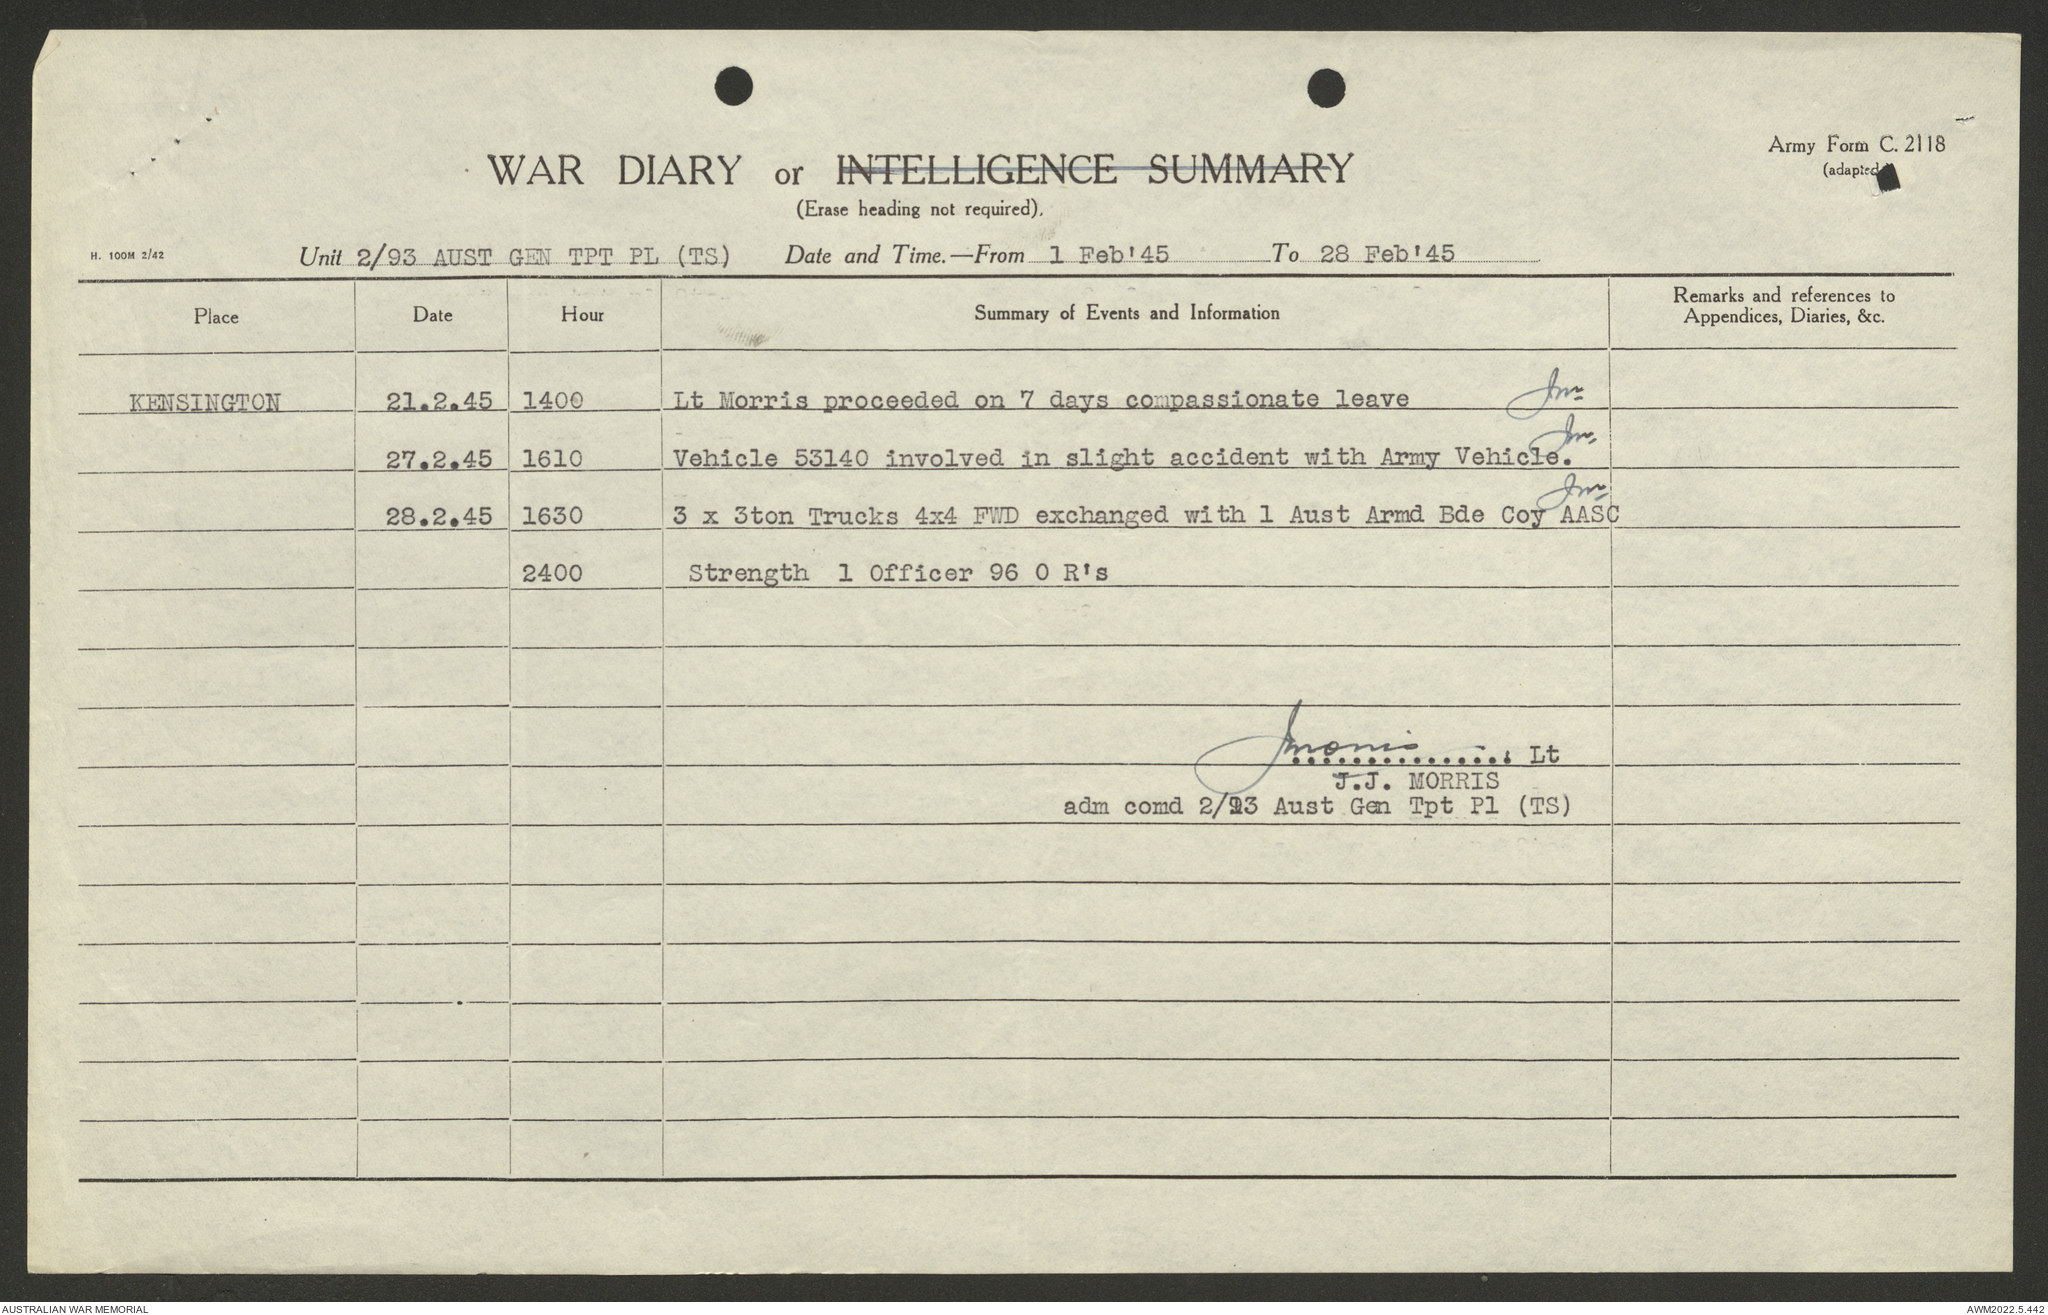 Army Form C. 2118
(adapted)
WAR DIARY or INTELLIGENCE SUMMARY
(Erase heading not required).
H. 100M 2/42
Unit 2/93 AUST GEN TPT PL (TS) Date and Time.—From 1 Feb'45 To 28 Feb'45
Place Date Hour Summary of Events and Information Remarks and references to Appendices, Diaries, &c.
KENSINGTON 21.2.45 1400 Lt Morris proceeded on 7 days compassionate leave Jm
27.2.45 1610 Vehicle 53140 involved in slight accident with Army Vehicle. Jm
28.2.45 1630 3 x 3ton Trucks 4x4 FWD exchanged with 1 Aust Armd Bde Coy AASC Jm
2400 Strength 1 Officer 96 O R's
JMorris Lt
J.J. MORRIS
adm comd 2/93 Aust Gen Tpt Pl (TS)
AUSTRALIAN WAR MEMORIAL
AWM2022.5.442